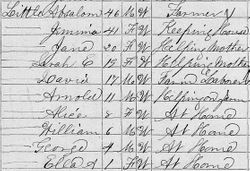 Little Absalom 46 M W Farmer
Jemima 41 F W Keeping House
Jane 20 F W Helping Mother
Sarah E 19 F W Helping Mother
David 17 M W Farm Laborer
Arnold 11 M W Helping on farm
Alice 8 F W At Home
William 6 M W At Home
George 4 M W At Home
Ella A 1 F W At Home